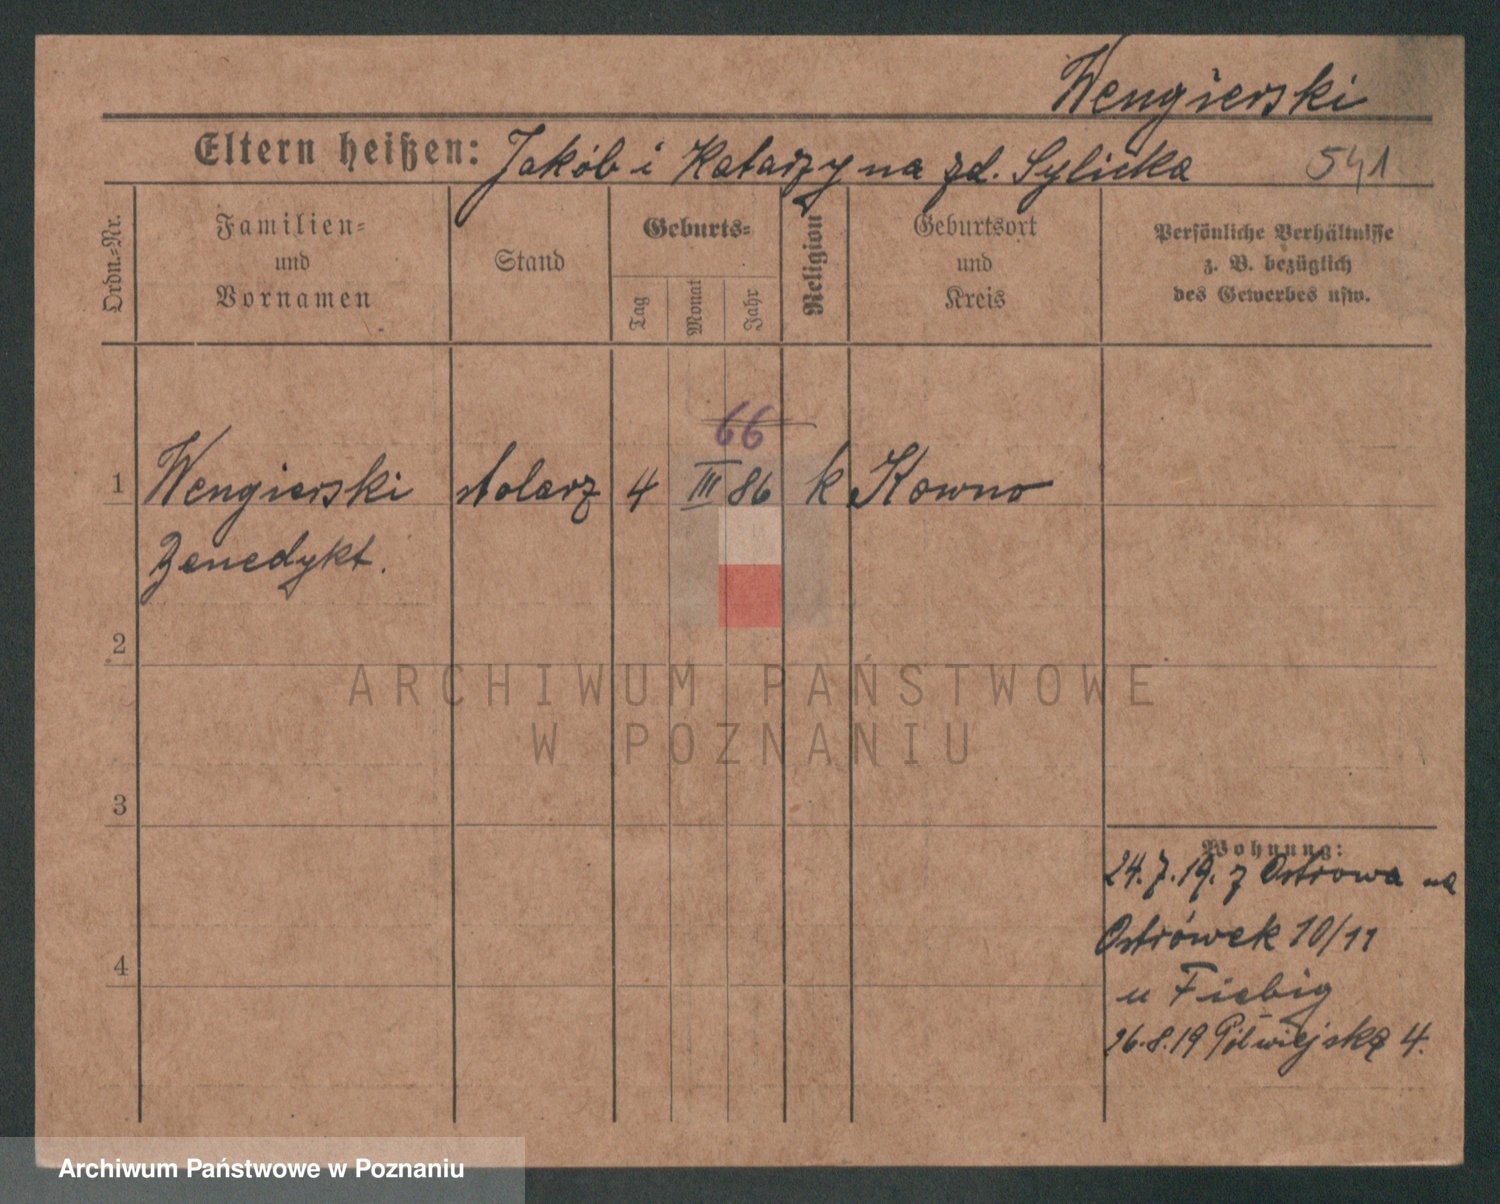 Wengierski
Eltern heißen: Jakób i Katarzyna zd. Sylicka 541
Ordn.-Nr.
Familien-
und
Vornamen
Stand
Geburts-
Tag
Monat
Jahr
Religion
Geburtsort
und
Kreis
Persönliche Verhältnisse
z. B. bezüglich
des Gewerbes usw.
66
1 Wengierski stolarz 4 III 86 k Kowno
Benedykt.
2
ARCHIWUM PAŃSTWOWE
W POZNANIU
3
Wohnung:
24.7.19. z Ostrowa na
Ostrówek 10/11
4
u Fiebig
26.8.19 Półwiejska 4.
Archiwum Państwowe w Poznaniu